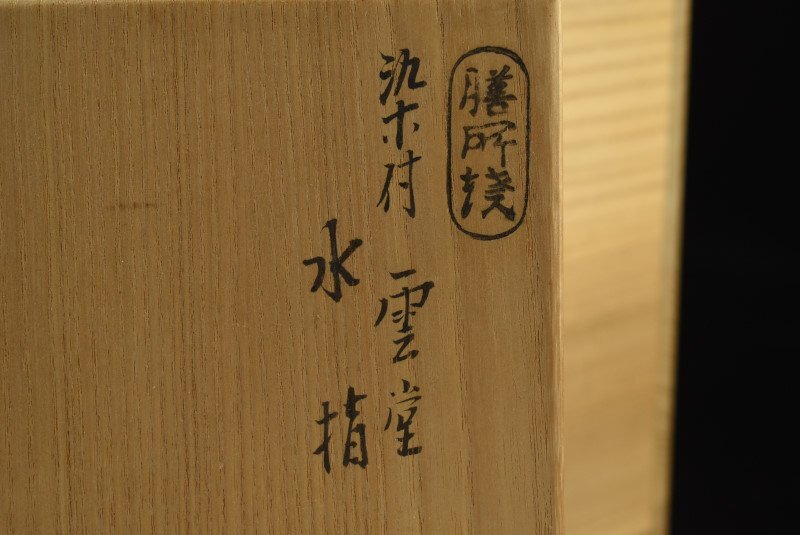 膳所焼
染付 雲堂
水指